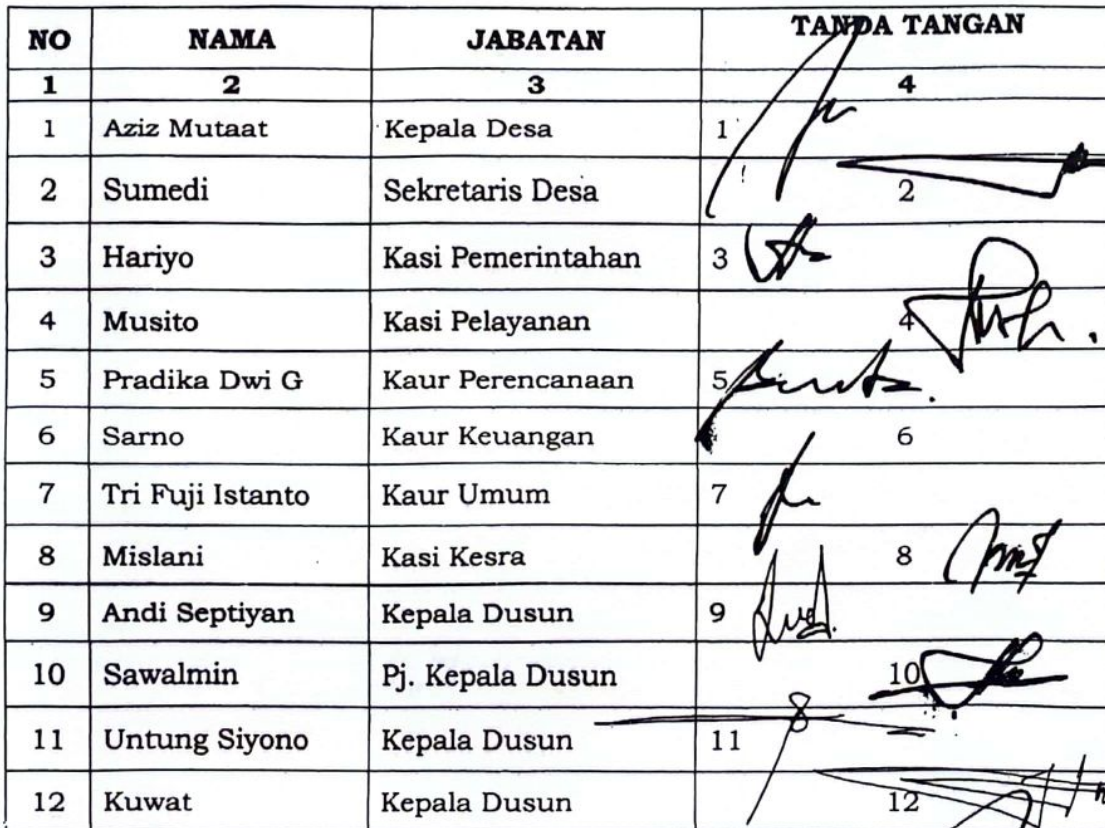 NO NAMA JABATAN TANDA TANGAN
1 2 3 4
1 Aziz Mutaat Kepala Desa 1
2 Sumedi Sekretaris Desa 2
3 Hariyo Kasi Pemerintahan 3
4 Musito Kasi Pelayanan 4
5 Pradika Dwi G Kaur Perencanaan 5
6 Sarno Kaur Keuangan 6
7 Tri Fuji Istanto Kaur Umum 7
8 Mislani Kasi Kesra 8
9 Andi Septiyan Kepala Dusun 9
10 Sawalmin Pj. Kepala Dusun 10
11 Untung Siyono Kepala Dusun 11
12 Kuwat Kepala Dusun 12